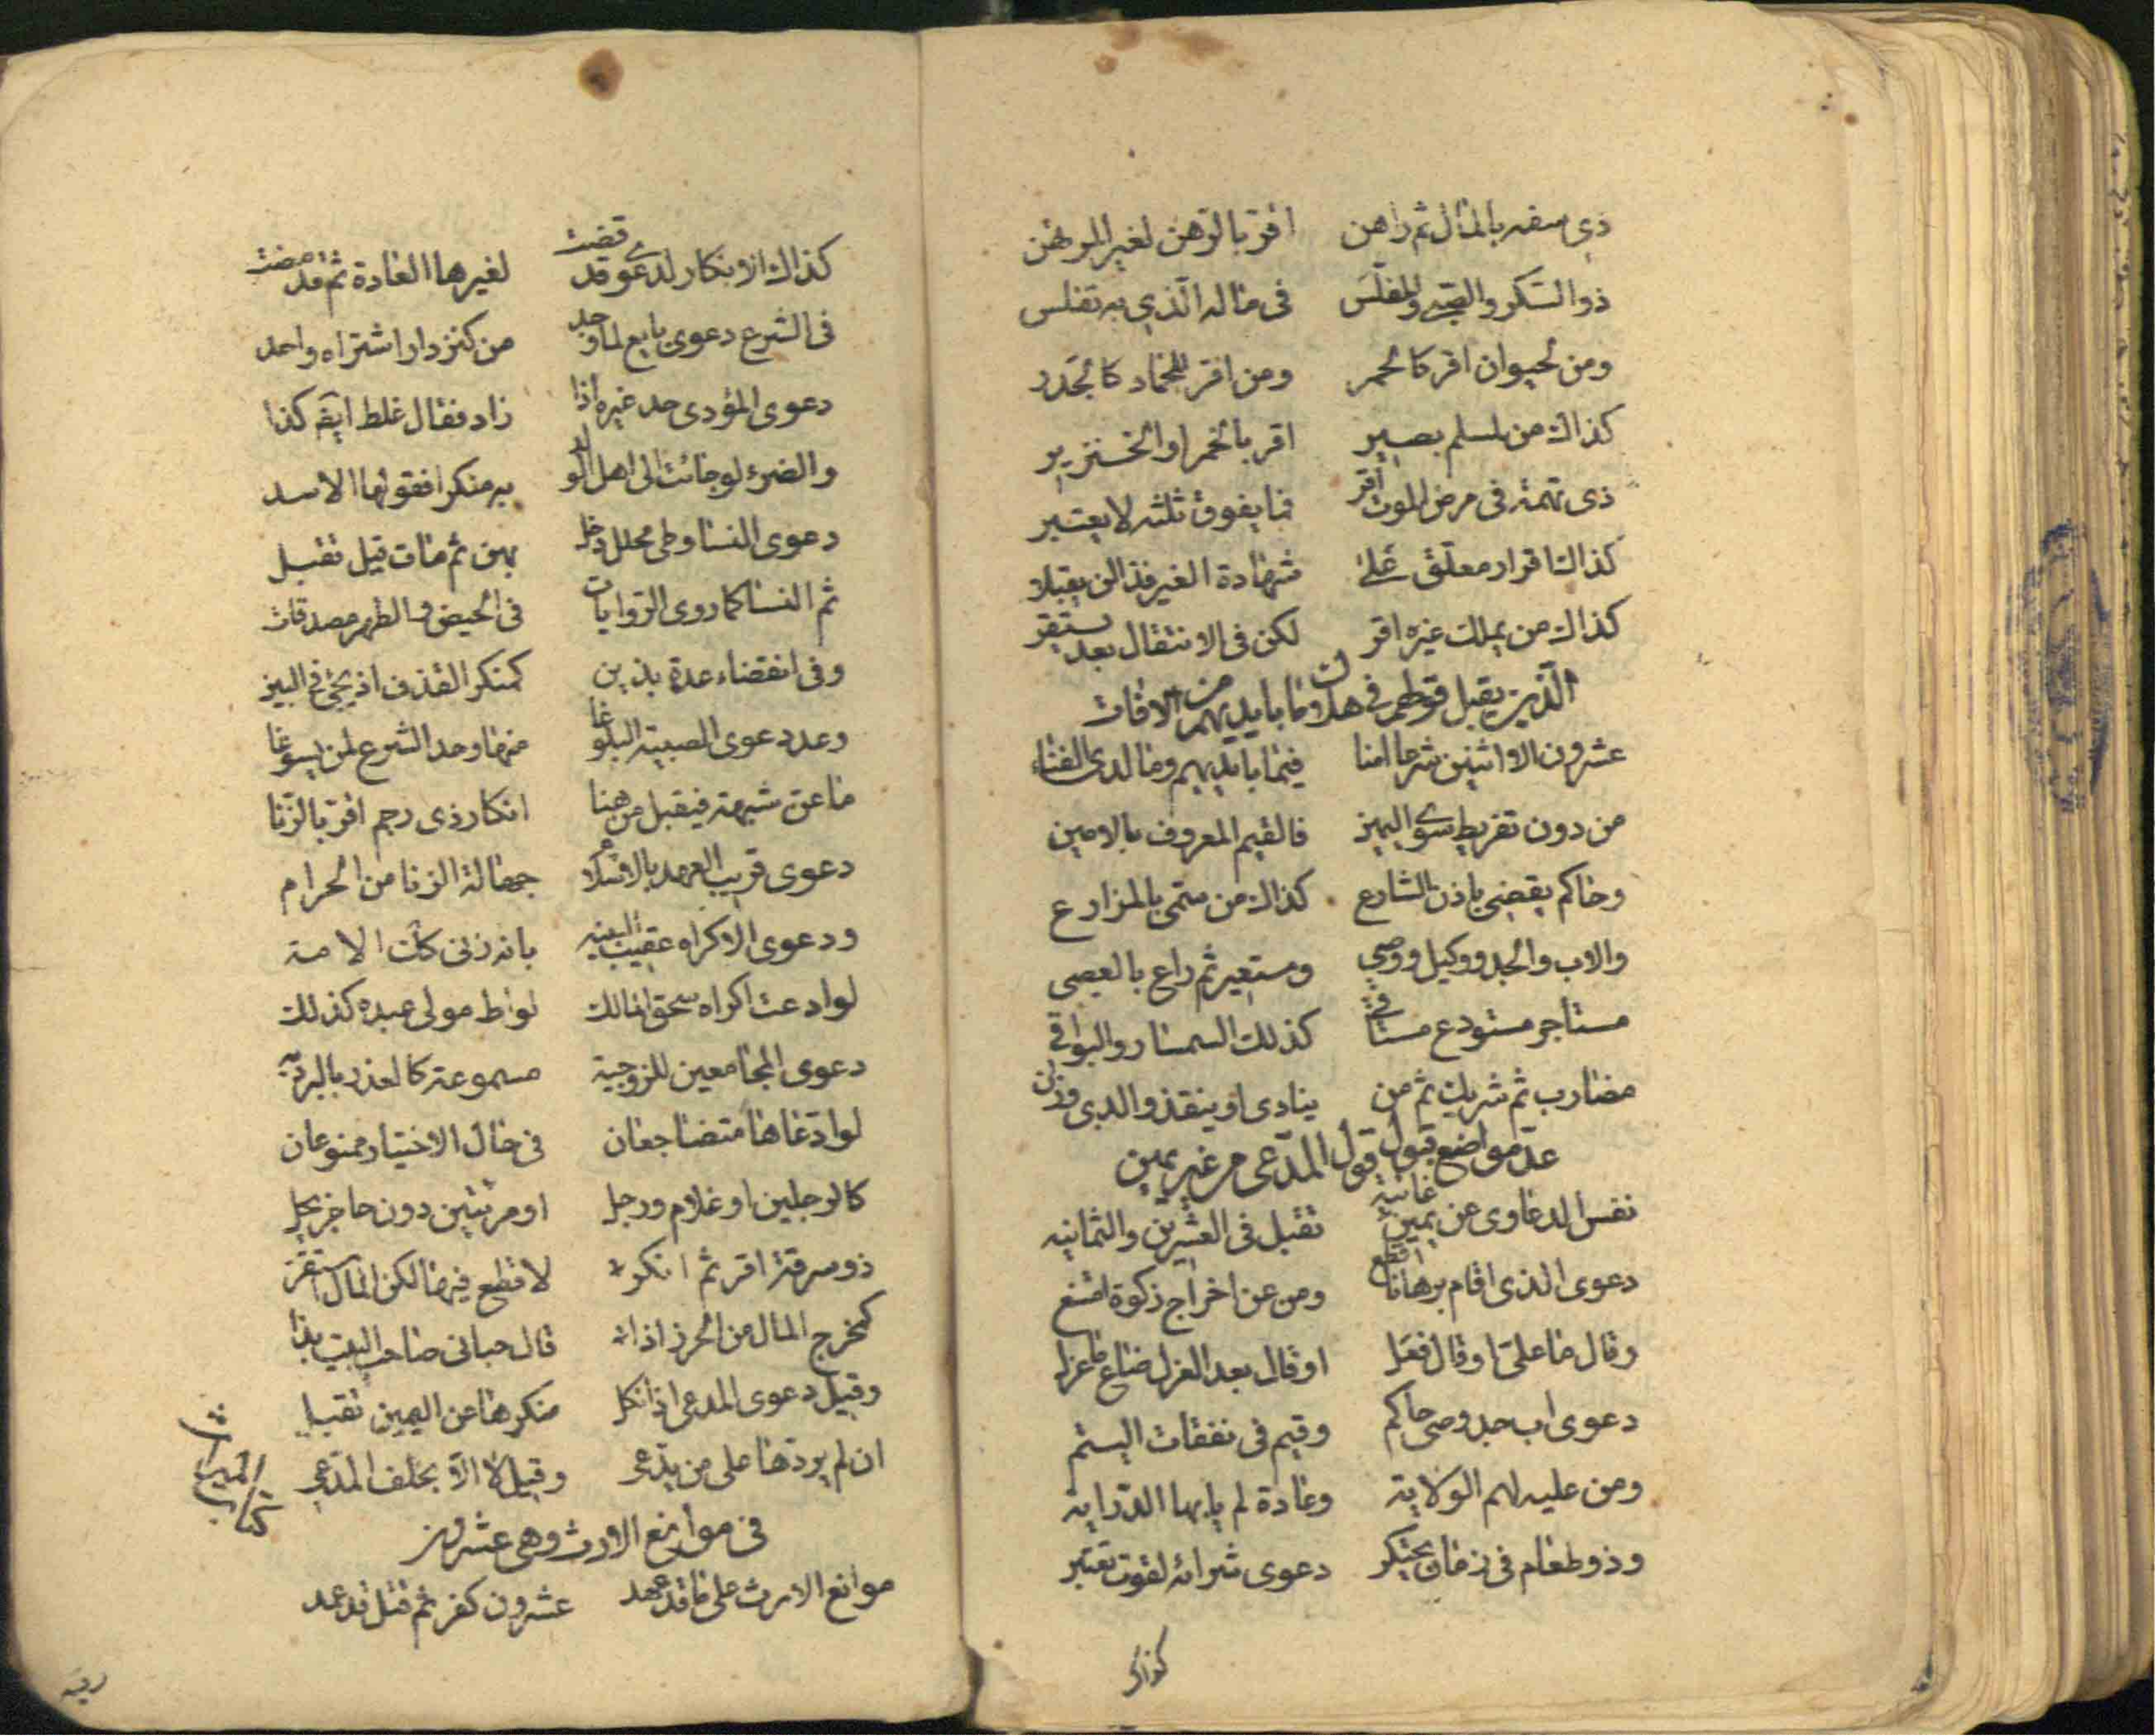 ذي سفه بالمال ثم راهن اقر بالرهن لغير المرتهن
ذو السكر والصبي والمفلس فى ماله الذي به تفلس
ومن لحيوان اقر كالحمر ومن اقر للجماد كالجدر
كذاك من لمسلم بصير اقر بالخمر او الخنزير
ذى تهمة فى مرض الموت اقر فما يفوق ثلثه لا يعتبر
كذاك اقرار معلق على شهادة الغير فذا لن يقبلا
كذاك من بملك غيره اقر لكن فى الانتقال بعد يستقر
الذين يقبل قولهم فى هلاك ما بايديهم من الافات
عشرون الا اثنين شرعا امنا فيما بايديهم وما لدى الفناء
من دون تفريط سوى اليمين فالقيم المعروف بالامين
وحاكم يقضى باذن الشارع كذاك من سمى بالمزارع
والاب والجد ووكيل ووصي ومستعير ثم راع بالعصى
مستاجر مستودع مساقى كذلك السمسار والبواقى
مضارب ثم شريك ثم من ينادى او ينقذ والذى وزن
عد مواضع قبول قول المدعى من غير يمين
نفس الدعاوى عن يمين غانيه تقبل فى العشرين والثمانيه
دعوى الذى اقام برهانا قطع ومن عن اخراج زكوة امتنع
وقال ما على او قال فعل او قال بعد العزل ضاع ما عزل
دعوى اب جد وصى حاكم وقيم فى نفقات اليتم
ومن عليه لهم الولاية وعادة لم يابها الدراية
وذو طعام فى زمان يحتكر دعوى شرائه لقوت تعتبر
كذاك
كذاك الابكار لدعوى قد قضت لغيرها العادة ثم قد مضت
فى الشرع دعوى بايع لما وجد من كنز دار اشتراه واحد
دعوى المؤدى حد غيره اذا زاد فقال غلط ايضا كذا
والضرء لو جائت الى اهل الولد به منكرا فقولها الاسد
دعوى النسا وطى محلل دخل بهن ثم مات قيل تقبل
ثم النسا كما روى الروايات فى الحيض والطهر مصدقات
وفى انقضاء عدة بذين كمنكر القذف اذ يجئ فى البين
وعد دعوى الصبية البلوغا منها وحد الشرع لمن يسوغا
ما عن شبهة فيقبل من هنا انكار ذى رجم اقر بالزنا
دعوى قريب العهد بالاسلام جهالة الزنا من الحرام
ودعوى الاكراه عقيب البينه بانه زنى كذاك الامة
لو ادعت اكراه سحق المالك لواط مولى عبده كذلك
دعوى المجامعين للزوجية مسموعة كالعذر بالبرية
لو ادعاها متضاجعان فى حال الاختيار ممنوعان
كالرجلين او غلام ورجل او مرئتين دون حاجز يحل
ذو سرقة اقر ثم انكره لا قطع فيها لكن المال استقر
كمخرج المال من الحرز اذا قال حبانى صاحب البيت بذا
وقيل دعوى المدعى اذا نكل منكرها عن اليمين تقبل
ان لم يردها على من يدعى وقيل لا الا بحلف المدعى
كتاب الميراث
فى موانع الارث وهى عشرون
موانع الارث على ما قد عهد عشرون كفر ثم قتل قد عمد